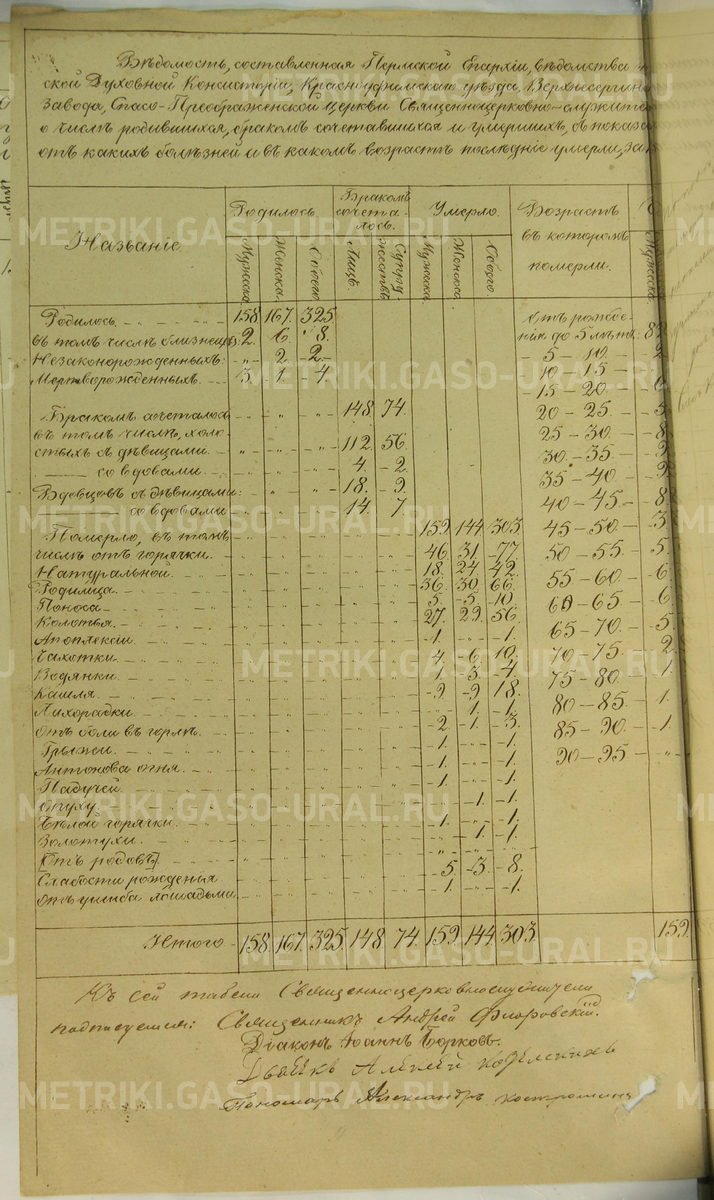 Вѣдомость, составленная Пермской Епархіи, вѣдомства
ской Духовной Консисторіи, Красноуфимскаго уѣзда, Верхнесергин
завода, Спасо-Преображенской церкви Священноцерковно-служите
о числѣ родившихся, бракомъ сочетавшихся и умершихъ, съ показа
отъ какихъ болѣзней и въ какомъ возрастѣ послѣдніе умерли, за
Названіе
Родилось.
Бракомъ сочета-лось.
Умерло.
Возрастъ въ которомъ померли.
Мужеска. Женска. Обоего. Лицъ. Супружествъ. Мужеска. Женска. Обоего. Мужеска.
Родилось. 158. 167. 325.
въ томъ числѣ близнецовъ 2. 6. 8.
Незаконорожденныхъ: „ 2. 2.
Мертворожденныхъ. 3. 1. 4.
Бракомъ сочеталось 148. 74.
въ томъ числѣ, холо-
стыхъ съ дѣвицами. 112. 56.
со вдовами. 4. 2.
Вдовцовъ съ дѣвицами: 18. 9.
со вдовами 14. 7.
Померло, въ томъ 159. 144. 303.
числѣ отъ горячки. 46. 31. 77.
Натуральной. 18. 24. 42.
Родимца. 36. 30. 66.
Поноса. 5. 5. 10.
Колотья. 27. 29. 56.
Апоплексіи 1. „ 1.
Чахотки. 4. 6. 10.
Водянки. 1. 3. 4.
Кашля. 9. 9. 18.
Лихорадки. 1. 1.
Отъ боли въ горлѣ. 2. 1. 3.
Грыжи. 1. 1.
Антонова огня. 1. 1.
Падучей. 1. 1.
Опуху. 1. 1.
Бѣлой горячки. 1. 1.
Золотухи. 1. 1.
[Отъ родовъ] „ „ „
Слабости рожденія 5. 3. 8.
Отъ ушиба лошадьми. 1. 1.
Отъ рожде-
нія до 5 лѣтъ: 82
5 – 10. 2
10 – 15
15 – 20.
20 – 25. 5
25 – 30. 8
30 – 35.
35 – 40.
40 – 45. 8
45 – 50. 3
50 – 55. 5.
55 – 60. 6
60 – 65. 6
65 – 70. 5
70 – 75. 2
75 – 80. 1
80 – 85. 1.
85 – 90. 1.
90 – 95 „
Итого 158. 167. 325. 148. 74. 159. 144. 303. 159.
Къ сей табели Священноцерковнослужители
подписуемся: Священникъ Андрей Флоровскій.
Діаконъ Іоаннъ Борковъ.
Дьячкъ Алексѣй
Пономарь Александръ Костромин
METRIKI.GASO-URAL.RU